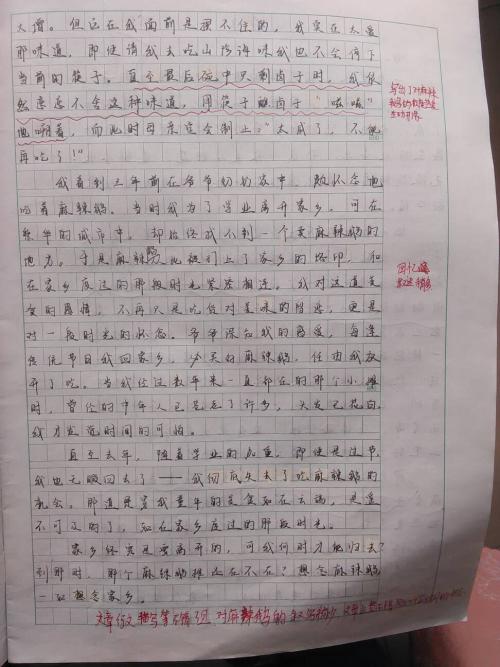 太馋。但这在我面前是摆不住的，我实在太爱
那味道，即使请我去吃山珍海味我也不会停下
当前的筷子。直至最后碗中只剩卤子时，我依
然恋恋不舍这种味道，用筷子蘸卤子“嗞嗞”
地嘲着，而此时母亲定会制止：“太咸了，不能
再吃了！”
写出了对麻辣
生动形象
我看到三年前在爷爷奶奶家中，
吃着麻辣鹅。当时我为了学业离开家乡，可在
繁华的城市中，却始终找不到一个卖麻辣鹅的
地方。于是麻辣鹅也被们上了家乡的烙印，和
在家乡度过的那段时光紧紧相连。我对这道美
食的感情，不再只是吃货对美味的陪恋，更是
对一段时光的怀念。爷爷深知我的喜爱，每逢
传统节日我回家乡，必买好麻辣鹅，任由我放
开了吃。当我经过数年来一直都在的那个小摊
时，曾经的中年人已是老了许多，头发已花白，
我才发觉时间的可怕。
回忆
直至去年，随着学业的加重，即使是过节
我也无暇回去了——我彻底失去了吃麻辣鹅的
机会。那道贯穿我童年的美食如在云端，是遥
不可及的了，如在家乡度过的那段时光。
家乡终究是要离开的，可我何时才能归去？
到那时，那个麻辣鹅摊还在不在？想念麻辣鹅
一如想念家乡。
文章 描写 对麻辣鹅的